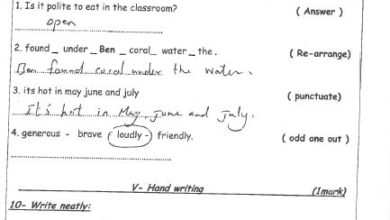 1. Is it polite to eat in the classroom? ( Answer )
open
2. found _ under _ Ben _ coral _ water _ the . ( Re-arrange)
Ben found coral under the water.
3. its hot in may june and july ( punctuate)
It's hot in May, june and July.
4. generous - brave ( loudly - friendly. ( odd one out )
V- Hand writing (1mark)
10- Write neatly: